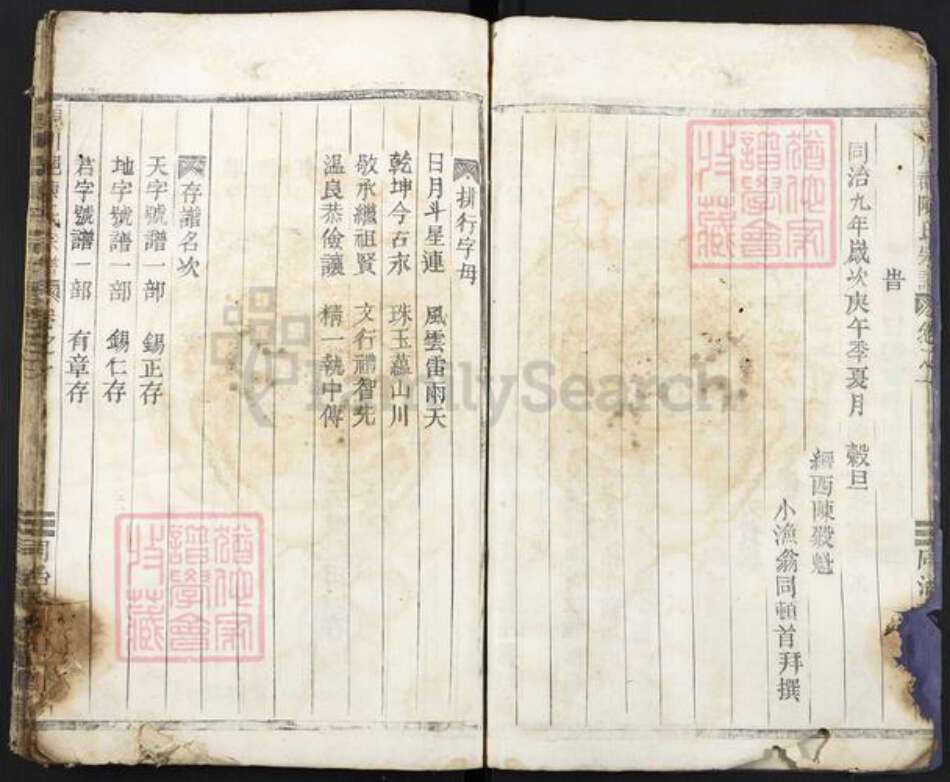 昔
同治九年歲次庚午季夏月 穀旦
西陳毅魁
小漁翁同頓首拜撰
排行字母
日月斗星連 風雲雷雨天
乾坤今古永 珠玉蘊山川
敬承繼祖賢 文行禮智先
溫良恭儉讓 精一執中傳
存譜名次
天字號譜一部 錫正存
地字號譜一部 錫仁存
字號譜一部 有章存
譜學會
收藏
譜學會
收藏
FamilySearch